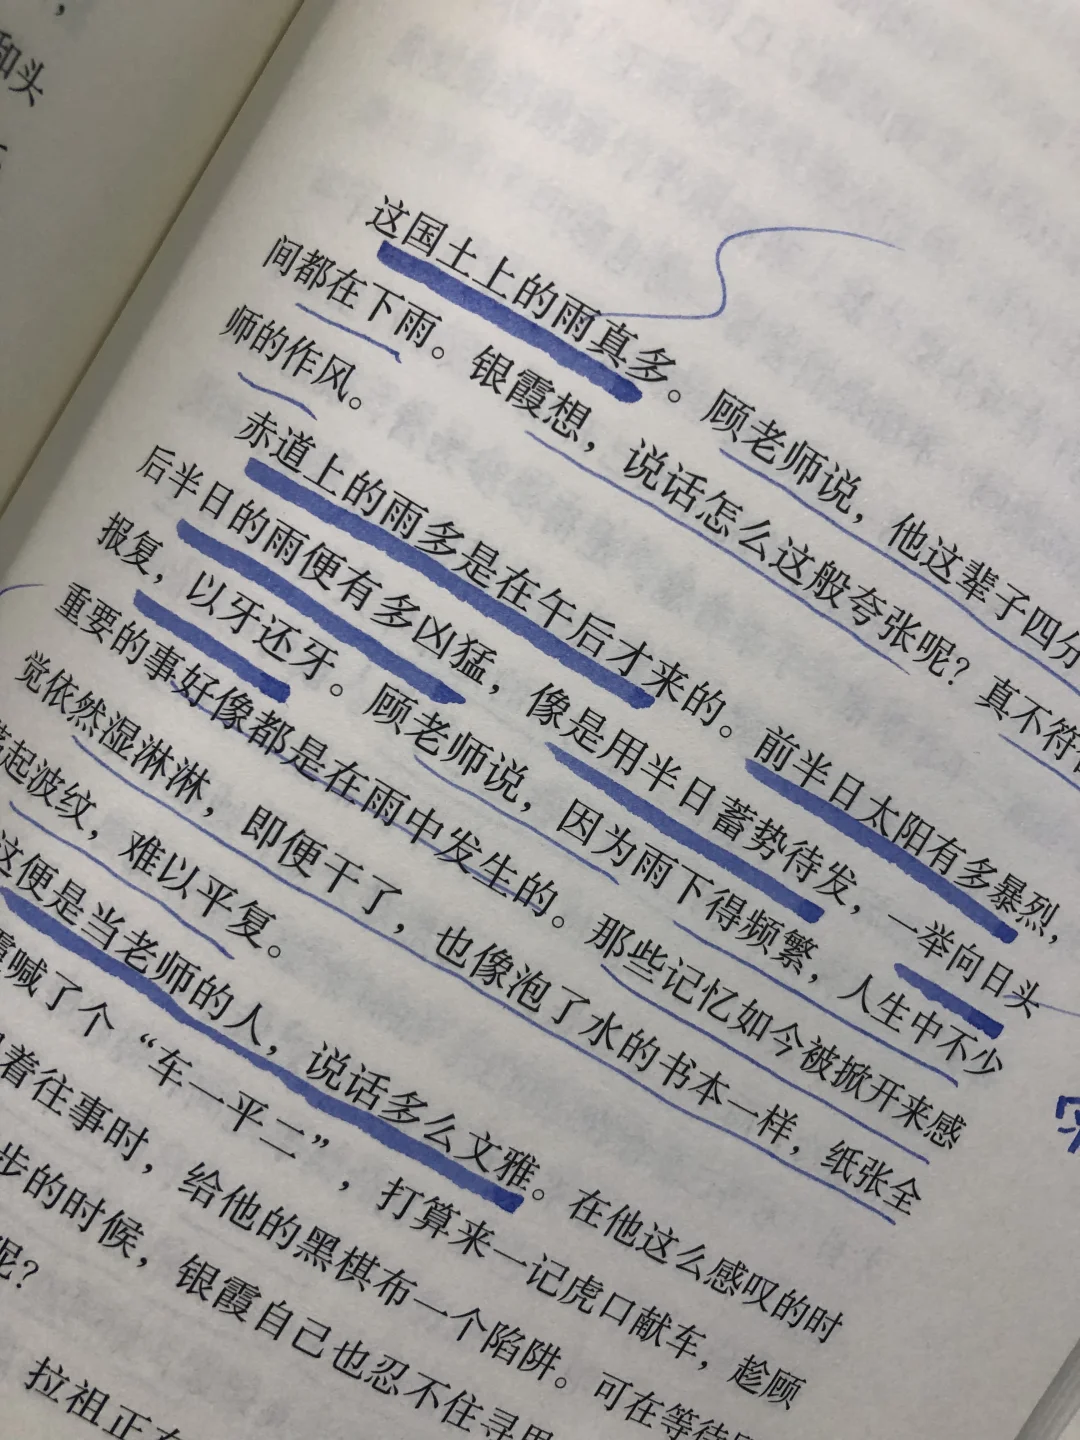 和头
这国土上的雨真多。顾老师说，他这辈子四分
间都在下雨。银霞想，说话怎么这般夸张呢？真不符
师的作风。
赤道上的雨多是在午后才来的。前半日太阳有多暴烈，
后半日的雨便有多凶猛，像是用半日蓄势待发，一举向日头
报复，以牙还牙。顾老师说，因为雨下得频繁，人生中不少
重要的事好像都是在雨中发生的。那些记忆如今被掀开来感
觉依然湿淋淋，即便干了，也像泡了水的书本一样，纸张全
起波纹，难以平复。
这便是当老师的人，说话多么文雅。在他这么感叹的时
霞喊了个“车一平二”，打算来一记虎口献车，趁顾
着往事时，给他的黑棋布一个陷阱。可在等待
步的时候，银霞自己也忍不住寻思
呢？
拉祖正在